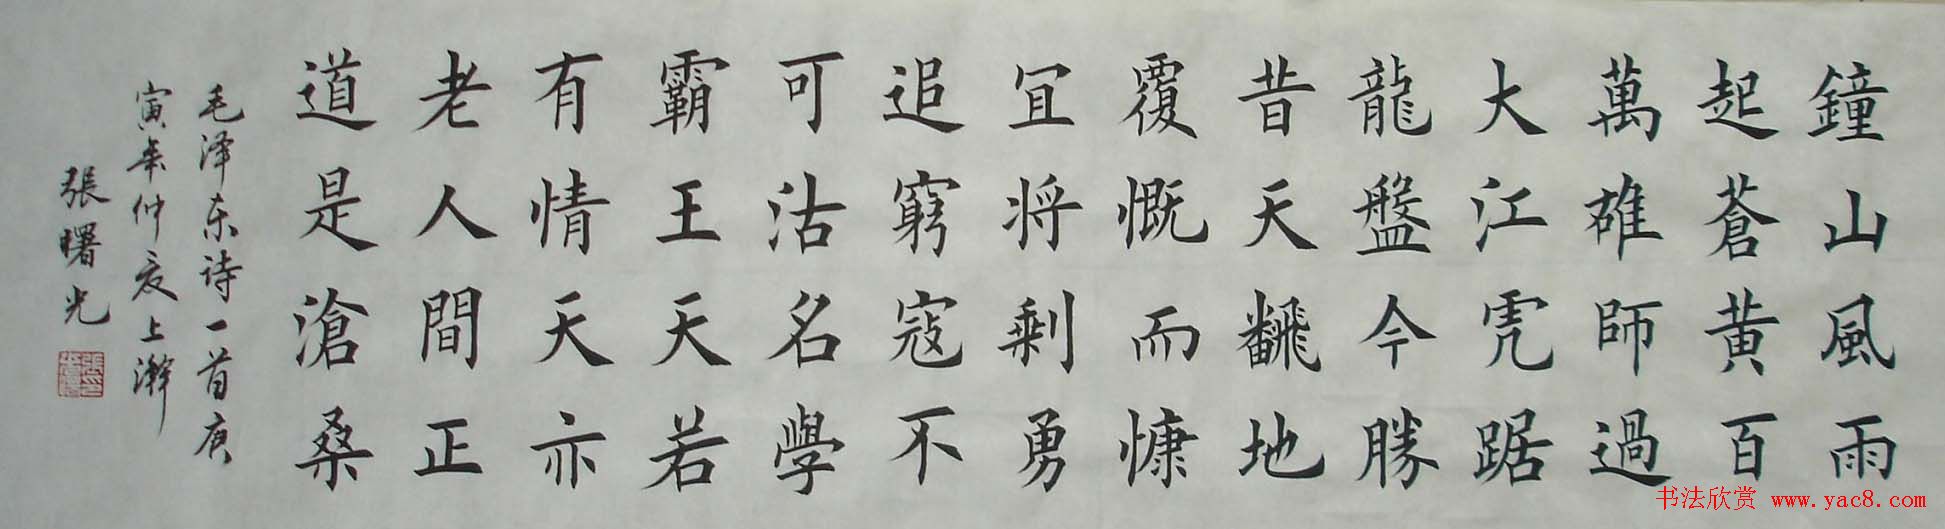 鐘山風雨
起蒼黄百
萬雄師過
大江虎踞
龍盤今勝
昔天飜地
覆慨而慷
宜将剩勇
追窮寇不
可沽名學
霸王天若
有情天亦
老人間正
道是滄桑
毛泽东诗一首庚
寅年仲夏上澣
張曙光
书法欣赏 www.yac8.com